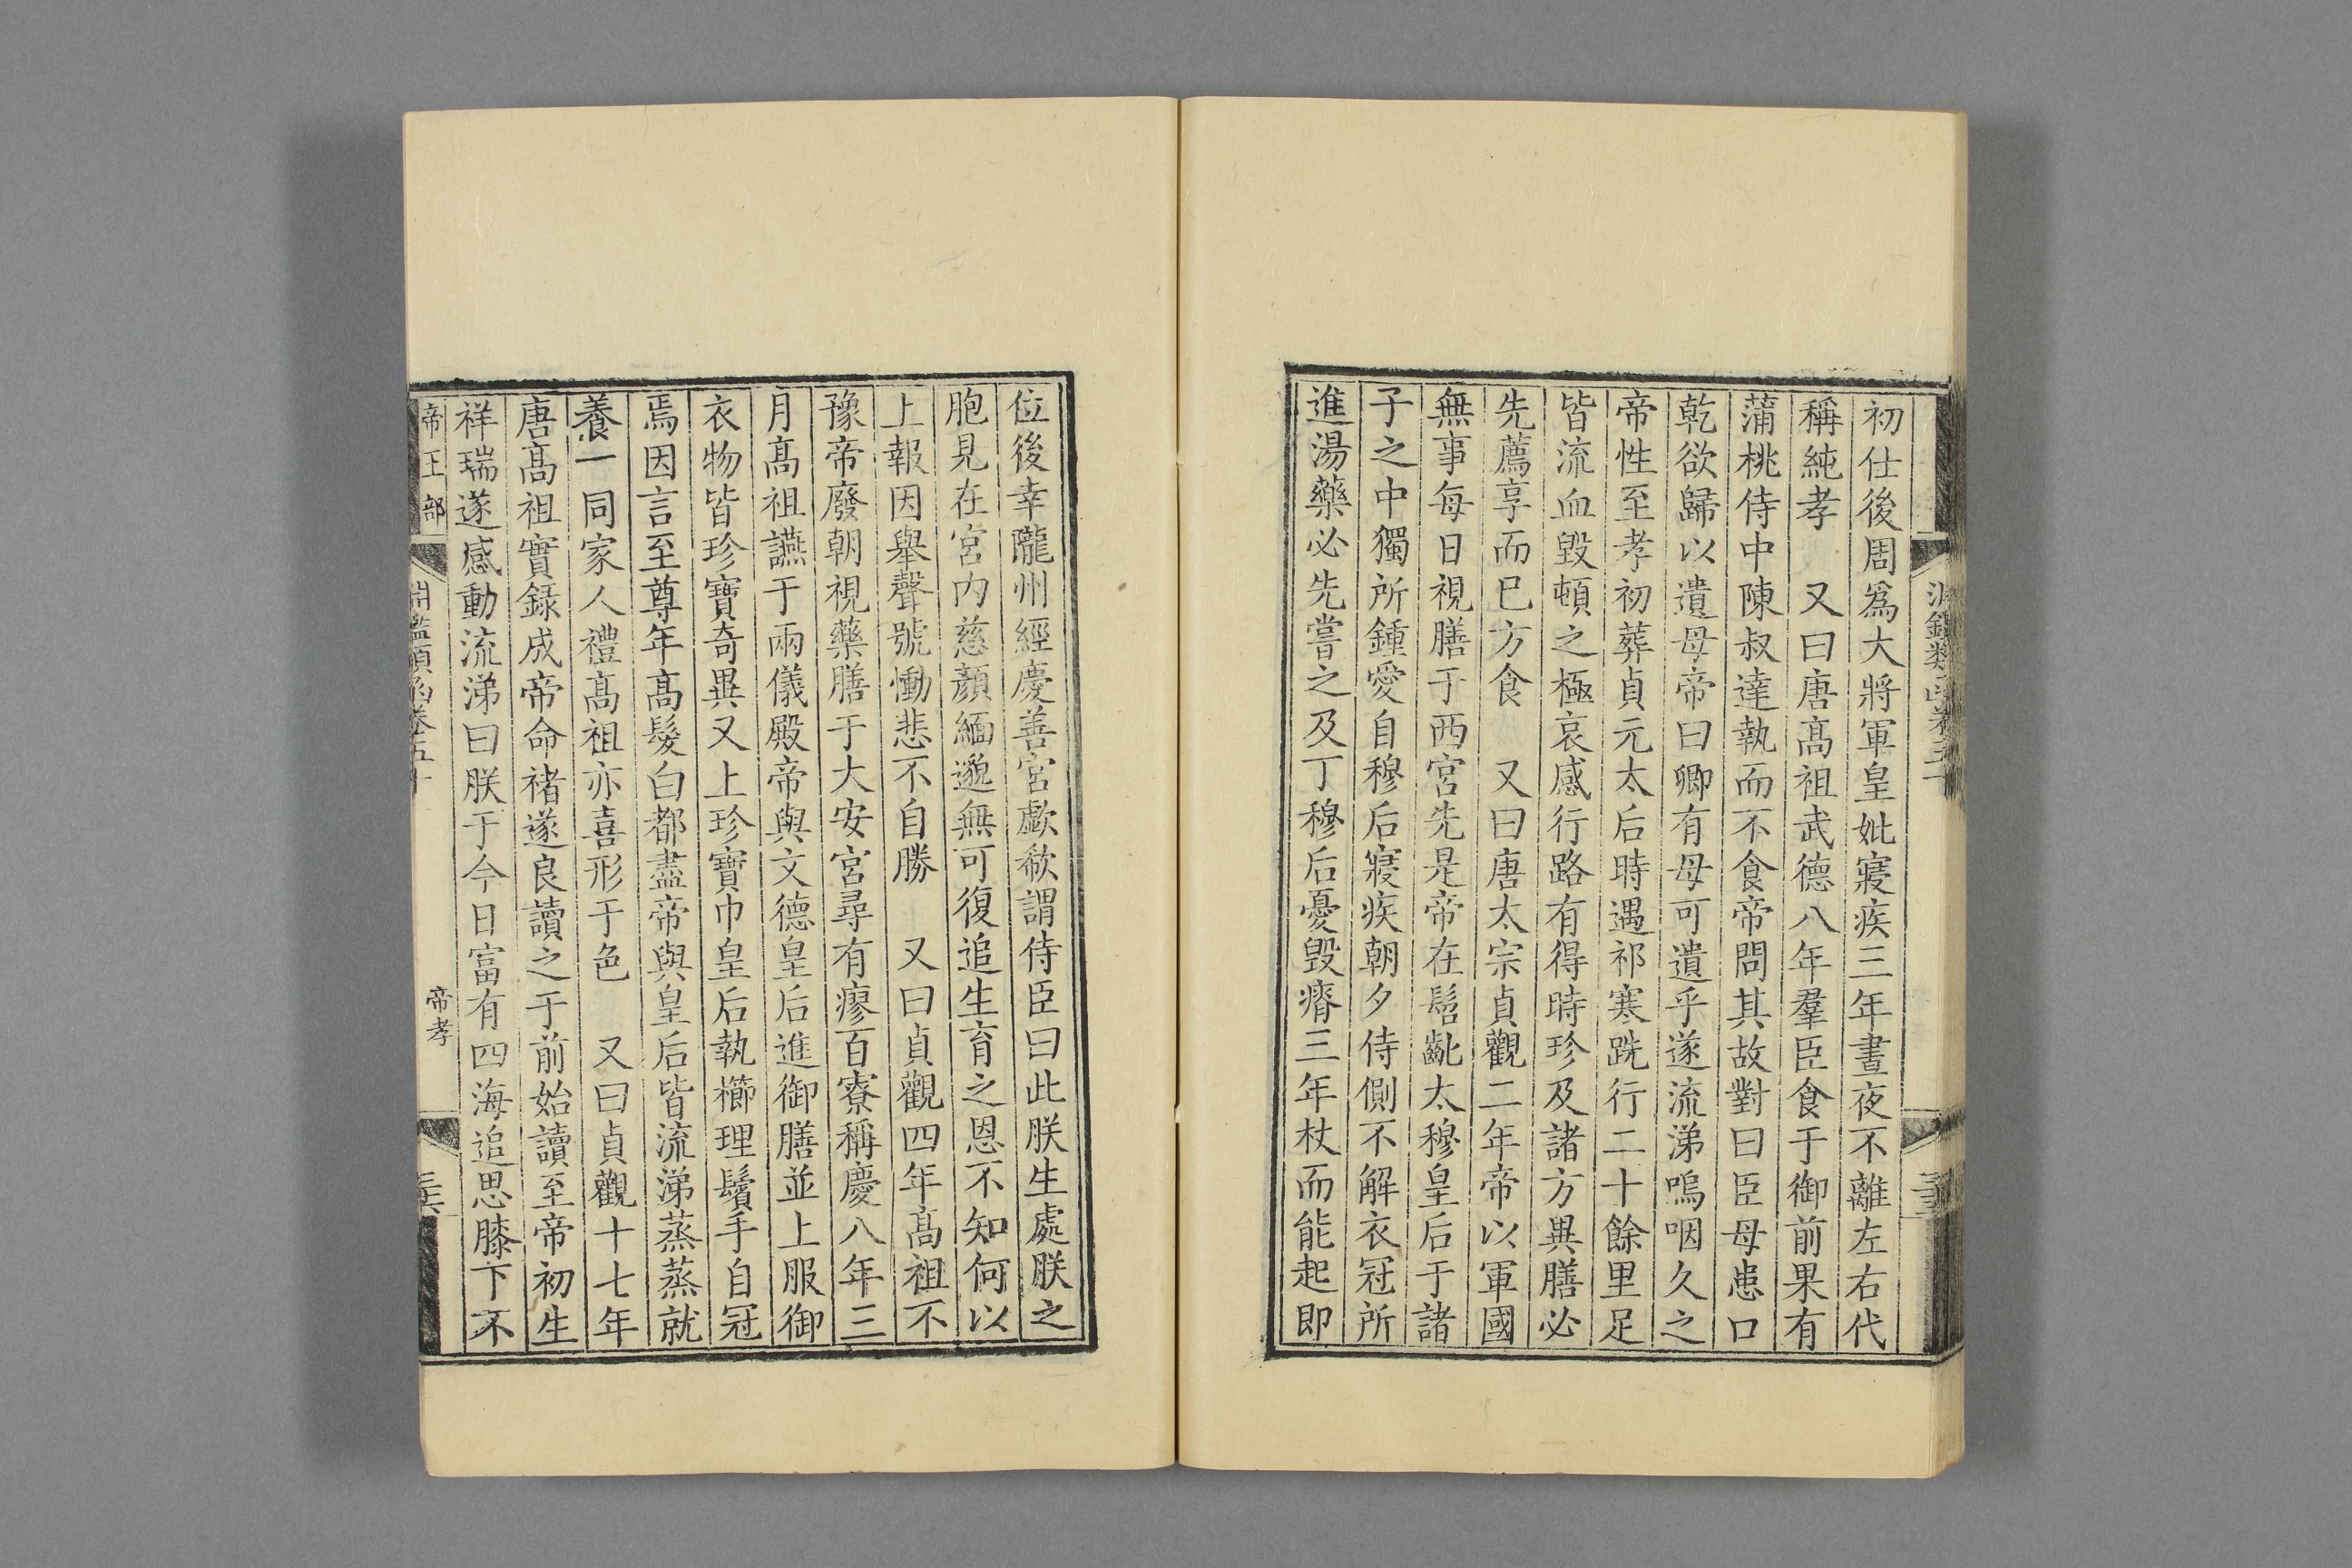 初仕後周爲大將軍皇妣寢疾三年晝夜不離左右代
稱純孝　又曰唐髙祖武德八年羣臣食于御前果有
蒲桃侍中陳叔達執而不食帝問其故對曰臣母患口
乾欲歸以遺母帝曰卿有母可遺乎遂流涕嗚咽久之
帝性至孝初葬貞元太后時遇祁寒跣行二十餘里足
皆流血毀頓之極哀感行路有得時珍及諸方異膳必
先薦享而已方食　又曰唐太宗貞觀二年帝以軍國
無事每日視膳于西宮先是帝在髫齔太穆皇后于諸
子之中獨所鍾愛自穆后寢疾朝夕侍側不解衣冠所
進湯藥必先嘗之及丁穆后憂毀瘠三年杖而能起即
位後幸隴州經慶善宮歔欷謂侍臣曰此朕生處朕之
胞見在宮内慈顔緬邈無可復追生育之恩不知何以
上報因舉聲號慟悲不自勝　又曰貞觀四年髙祖不
豫帝廢朝視藥膳于大安宮尋有瘳百寮稱慶八年三
月髙祖讌于兩儀殿帝與文德皇后進御膳並上服御
衣物皆珍寶奇異又上珍寶巾皇后執櫛理鬢手自冠
焉因言至尊年髙髮白都盡帝與皇后皆流涕蒸蒸就
養一同家人禮髙祖亦喜形于色　又曰貞觀十七年
唐髙祖實錄成帝命禇遂良讀之于前始讀至帝初生
祥瑞遂感動流涕曰朕于今日富有四海追思膝下不
帝王部　淵鑑類函卷五十　帝孝